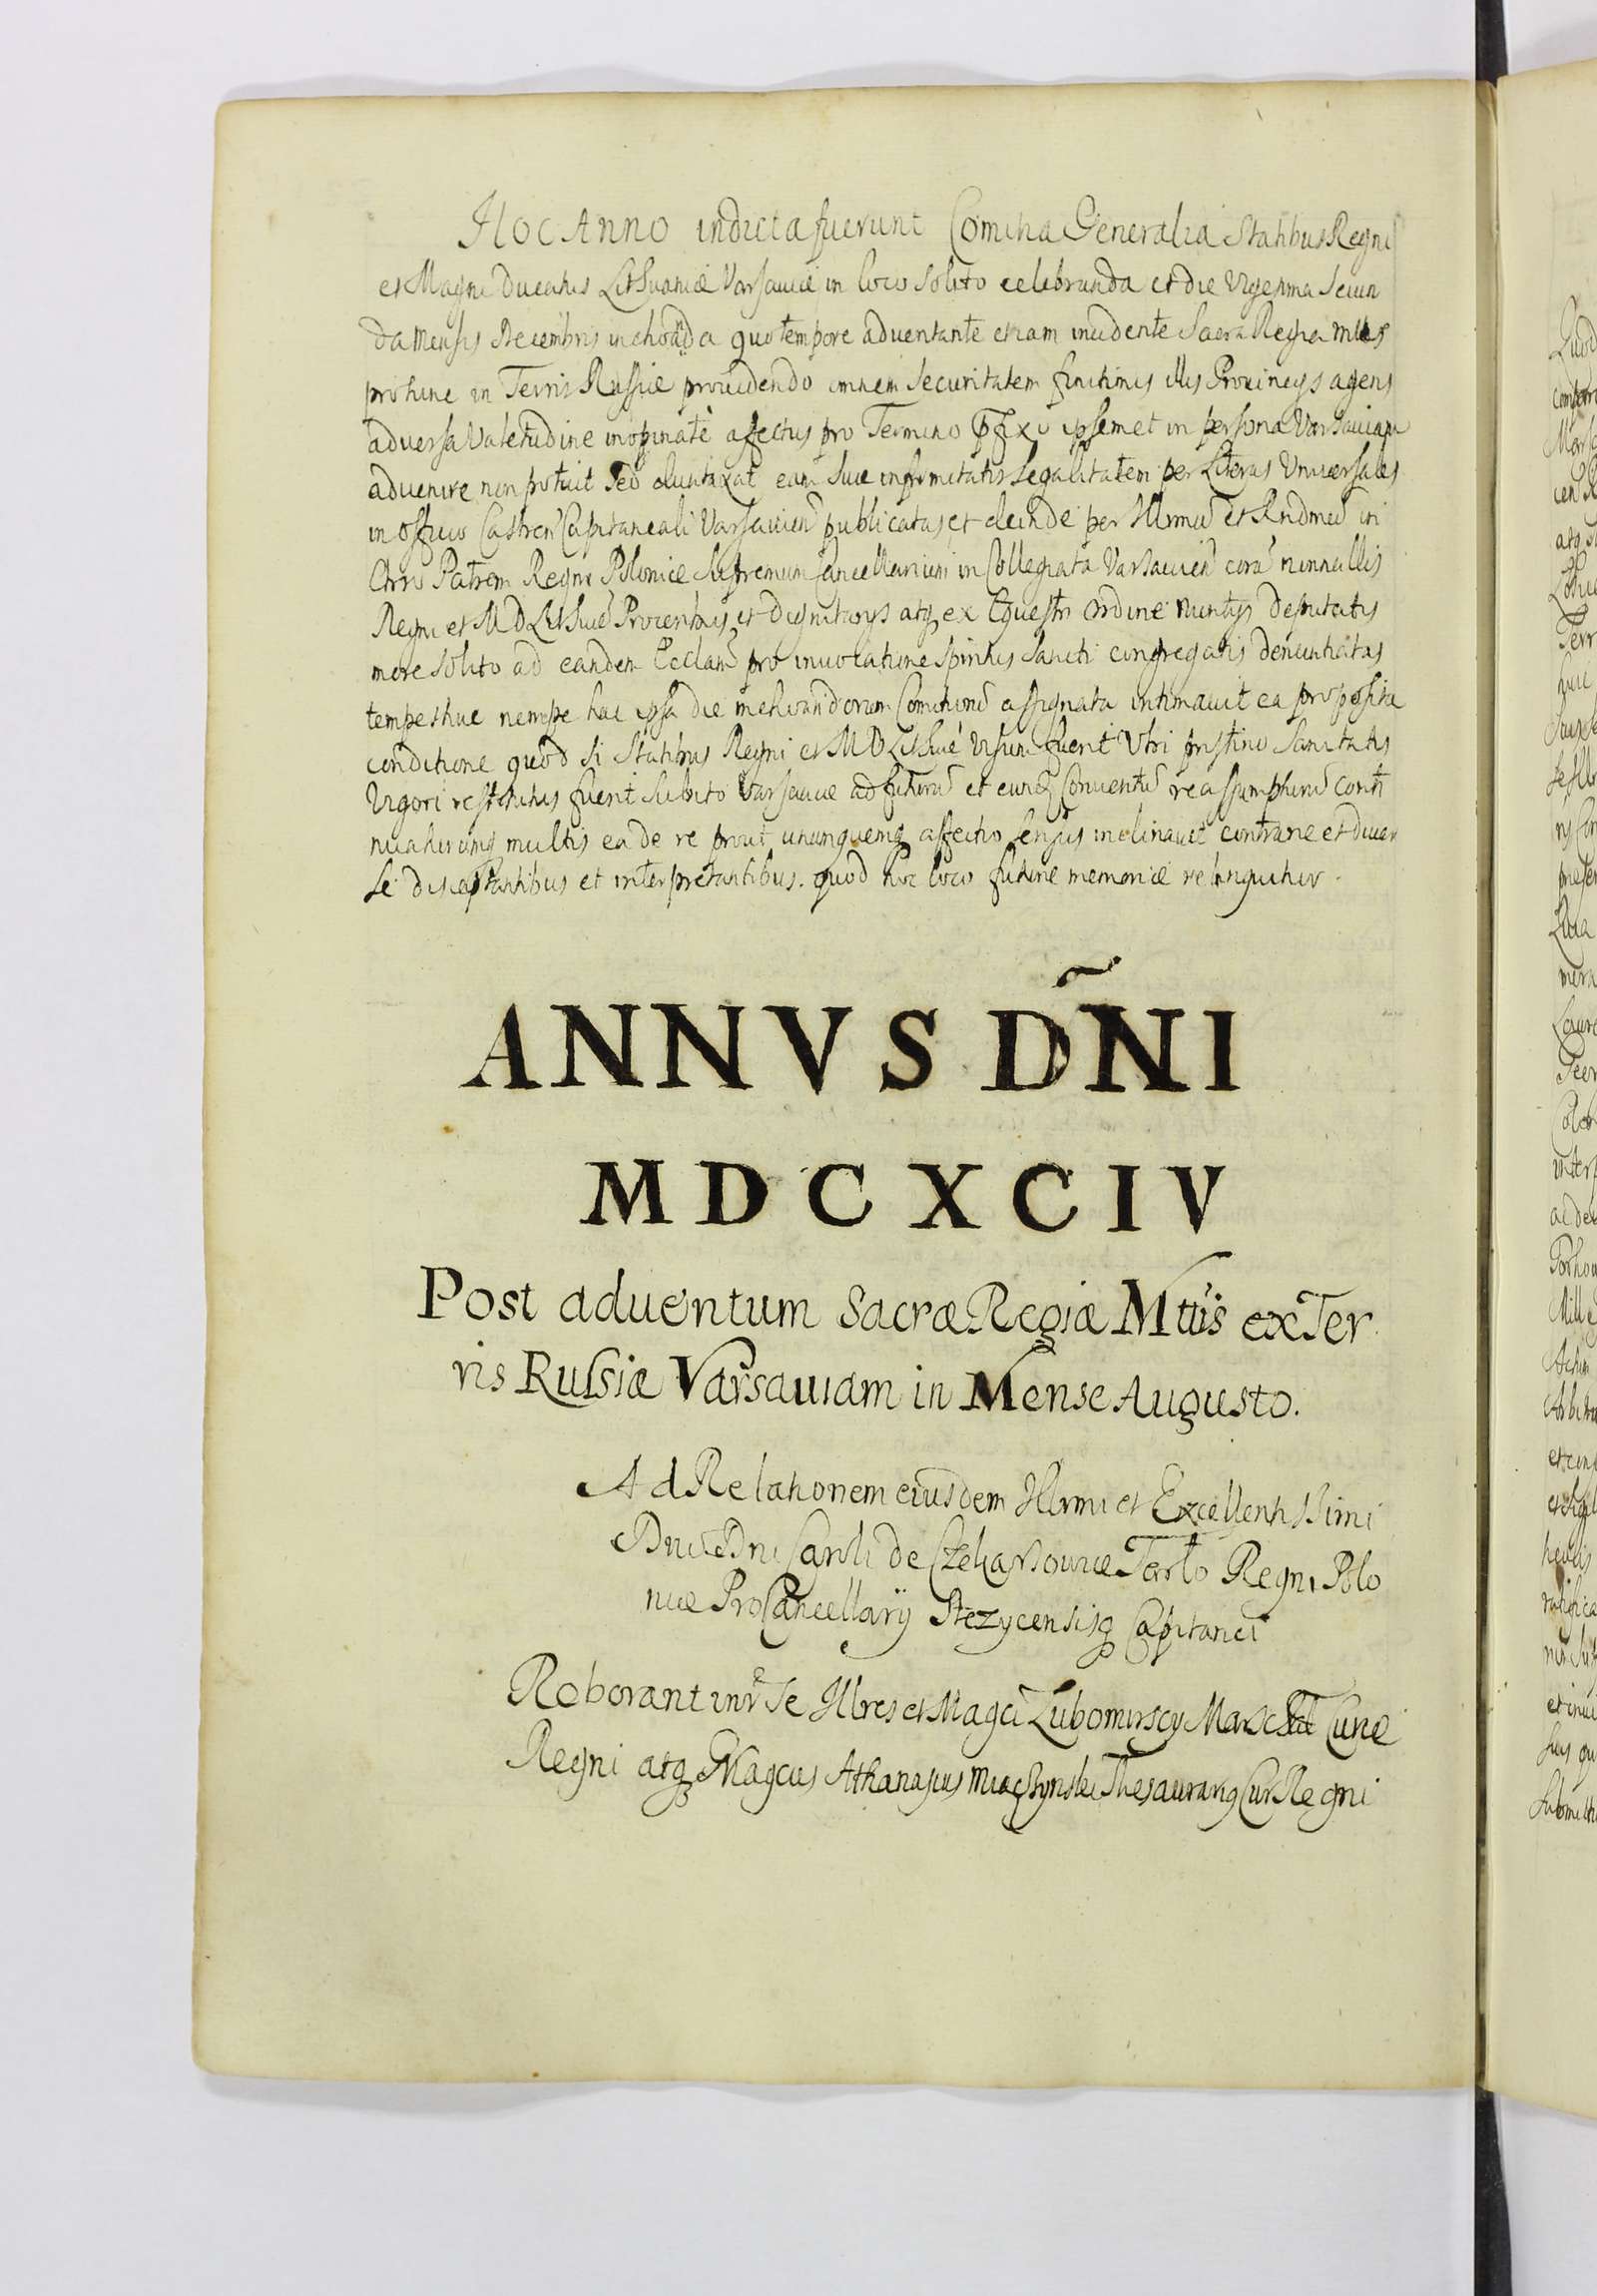 Hoc Anno indicta fuerunt Comitia Generalia Statibus Regni
et Magni Ducatus Lithuaniæ Varsaviæ in loco solito celebranda et die Vigesima Secun
da Mensis Decembris inchoāda quo tempore adventante etiam incidente Sacra Regia Mtas
protunc in Terris Russiæ providendo omnem securitatem finitimis illis Provincys agens
adversa Valetudine inopinatè affectus pro Termino p̄fixo ipsemet in persona Varsaviam
advenire non potuit sed duntaxat eam suæ infirmitatis Legalitatem per Literas Universales
in officio Castren Capitaneali Varsavien̄ publicatas et deinde per Illrmū et Rndmū in
Chro Patrem Regni Poloniæ Supremum Cancellarium in Collegiata Varsavien̄ corā nonnullis
Regni et M D Lithuæ Proceribus et Dignitarys atq ex Equestri Ordine Nuntys Deputatis
more solito ad eandem Ecclam̄ pro invocatione Spiritus Sancti congregatis denuntiatas
tempestive nempe hac ipsa die inchoandorum Comitiorū assignata intimavit ea proposita
conditione quod si Statibus Regni et M D Lithuæ visum fuerit Vbi pristino Sanitatis
Vigori restitutus fuerit subito Varsaviæ ad futurū et eundē Conventū reassumpturū conti
nuaturumq multis ea de re prout unumquemq affectio sensus inclinavit contrarie et diver
se disceptantibus et interpretantibus. quod hoc loco futuræ memoriæ relinquitur.
ANNVS DÑI
MDCXCIV
Post aduentum Sacræ Regiæ Mttis ex Ter
ris Russiæ Varsauiam in Mense Augusto.
Ad Relationem eiusdem Illrmi et Excellentissimi
Dni Dni Caroli de Czekarzowice Tarło Regni Polo
niæ ProCancellarij Stezycensisq Capitanei
Roborant intr Se Illres et Magci Lubomirscy Marsch Curiæ
Regni atq Magcus Athanasius Miączynski Thesaurarig Cur Regni